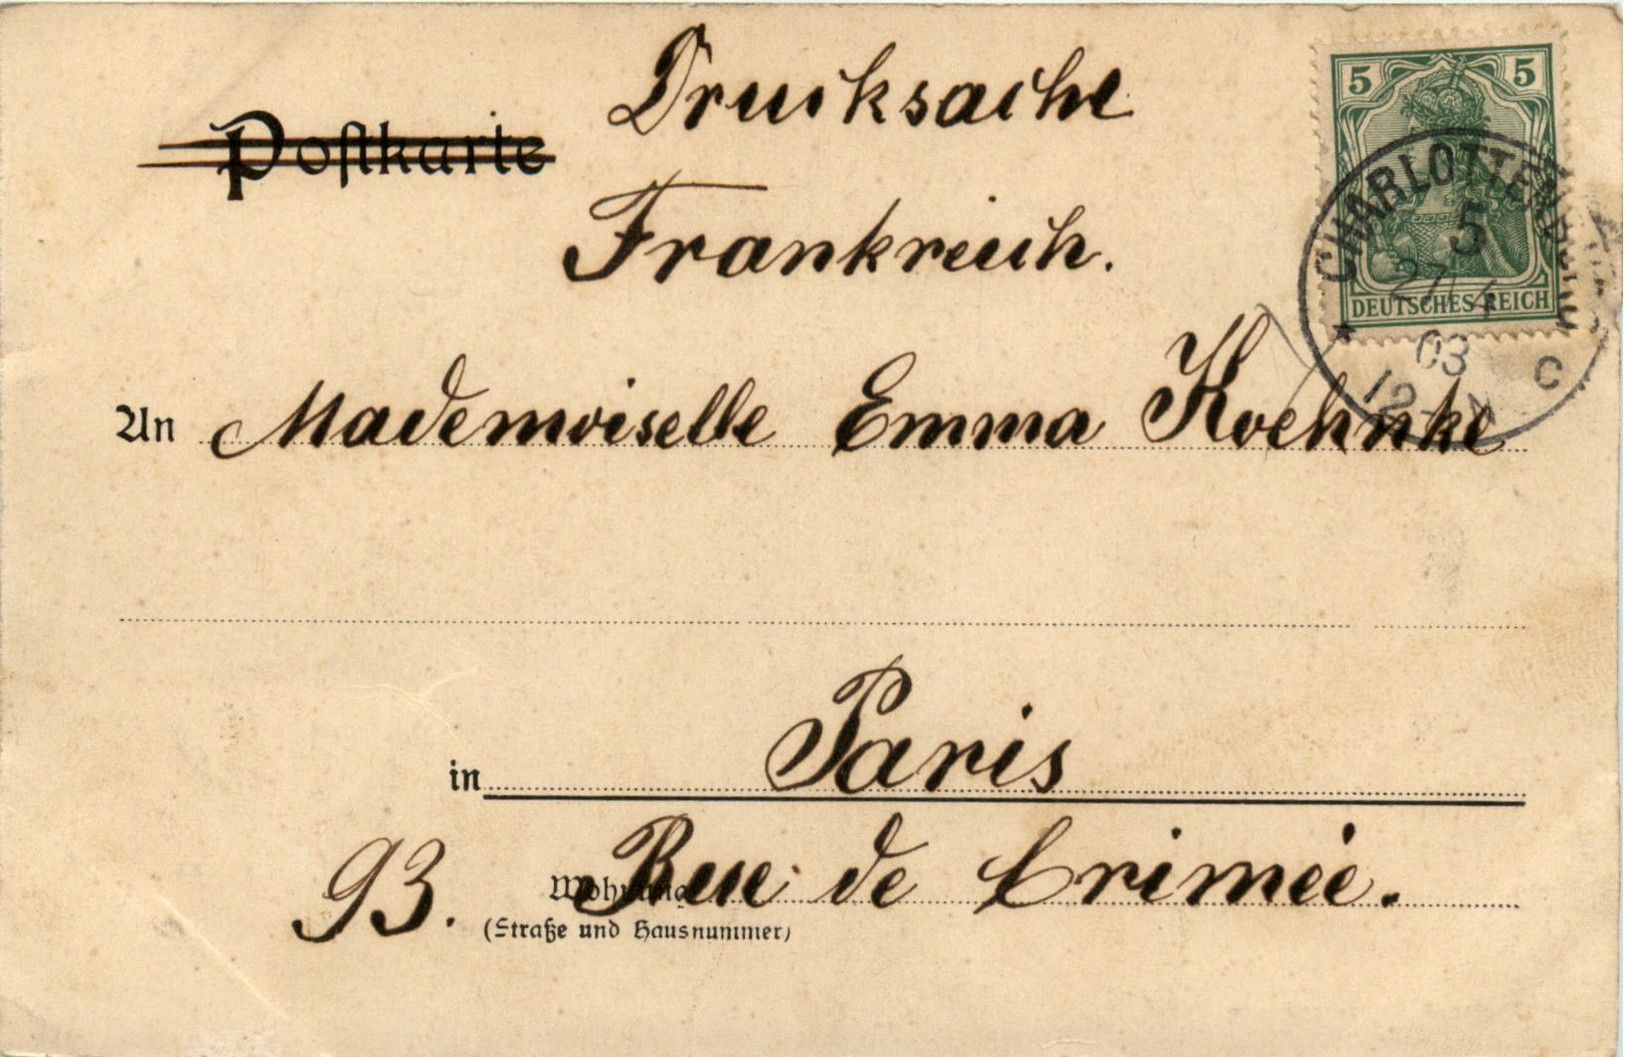 Postkarte
Drucksache
Frankreich.
5 5
DEUTSCHES REICH
CHARLOTTENBURG
5
27.4
03
12-
* C
An Mademoiselle Emma Koehnke
in Paris
93. Rue de Crimée.
Wohnung
(Straße und Hausnummer)